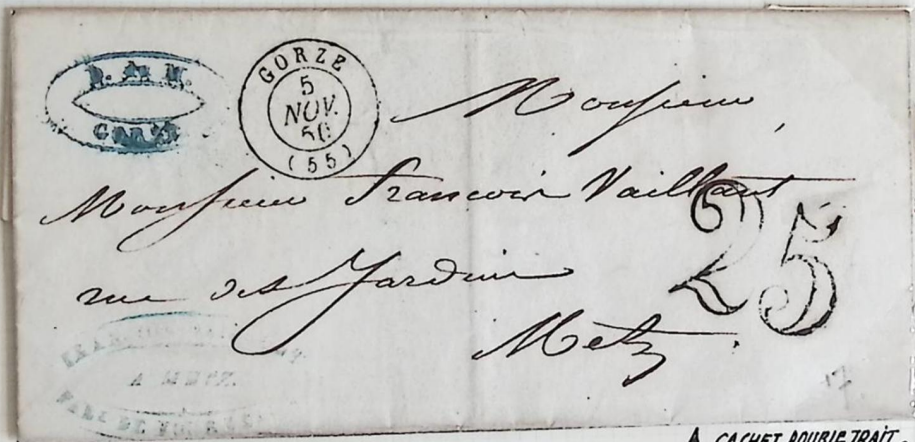 D. de M.
GORZE
GORZE
5
NOV.
50
(55)
Monsieur
Monsieur Francois Vaillant
rue des Jardins
Metz
25
A METZ.
17
A CACHET DOUBLE TRAIT